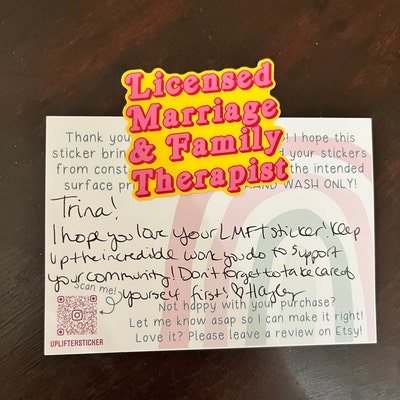 Licensed
Marriage
& Family
Therapist
Thank you ! I hope this
sticker brin d your stickers
from const the intended
surface pr AND WASH ONLY!
Trina!
I hope you love your LMFT sticker! Keep
up the incredible work you do to support
your community! Don't forget to take care of
yourself first! ♡ Hayley
Scan me!
Not happy with your purchase?
Let me know asap so I can make it right!
Love it? Please leave a review on Etsy!
UPLIFTERSTICKER